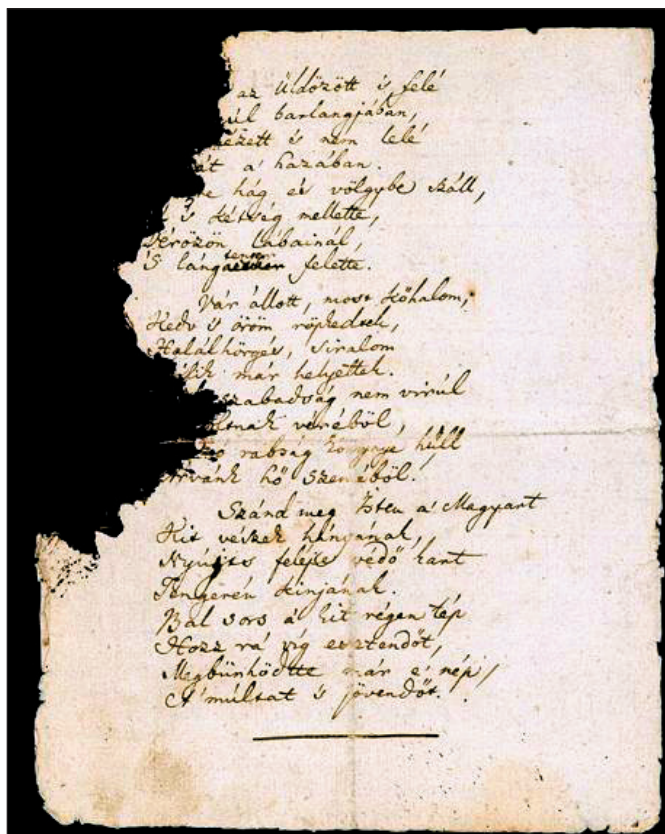 az Üldözött is felé
barlangjában,
nézett is nem lelé
a' hazában.
hág és völgybe száll,
is kétség mellette,
Vérözön lábainál,
'S lángtenger felette.
Vár állott, most kőhalom,
Kedv is öröm röpkedtek,
Halálhörgés, siralom
már helyettek.
szabadság nem virúl
véréből,
rabság könnye hull
hő szeméből.
Szánd meg Isten a' Magyart
Kit vészek hányának,
Nyújts feléje védő kart
Tengerén kínjának.
Bal sors a' kit régen tép
Hozz rá víg esztendőt,
Megbűnhödte már e' nép
A' múltat is jövendőt.